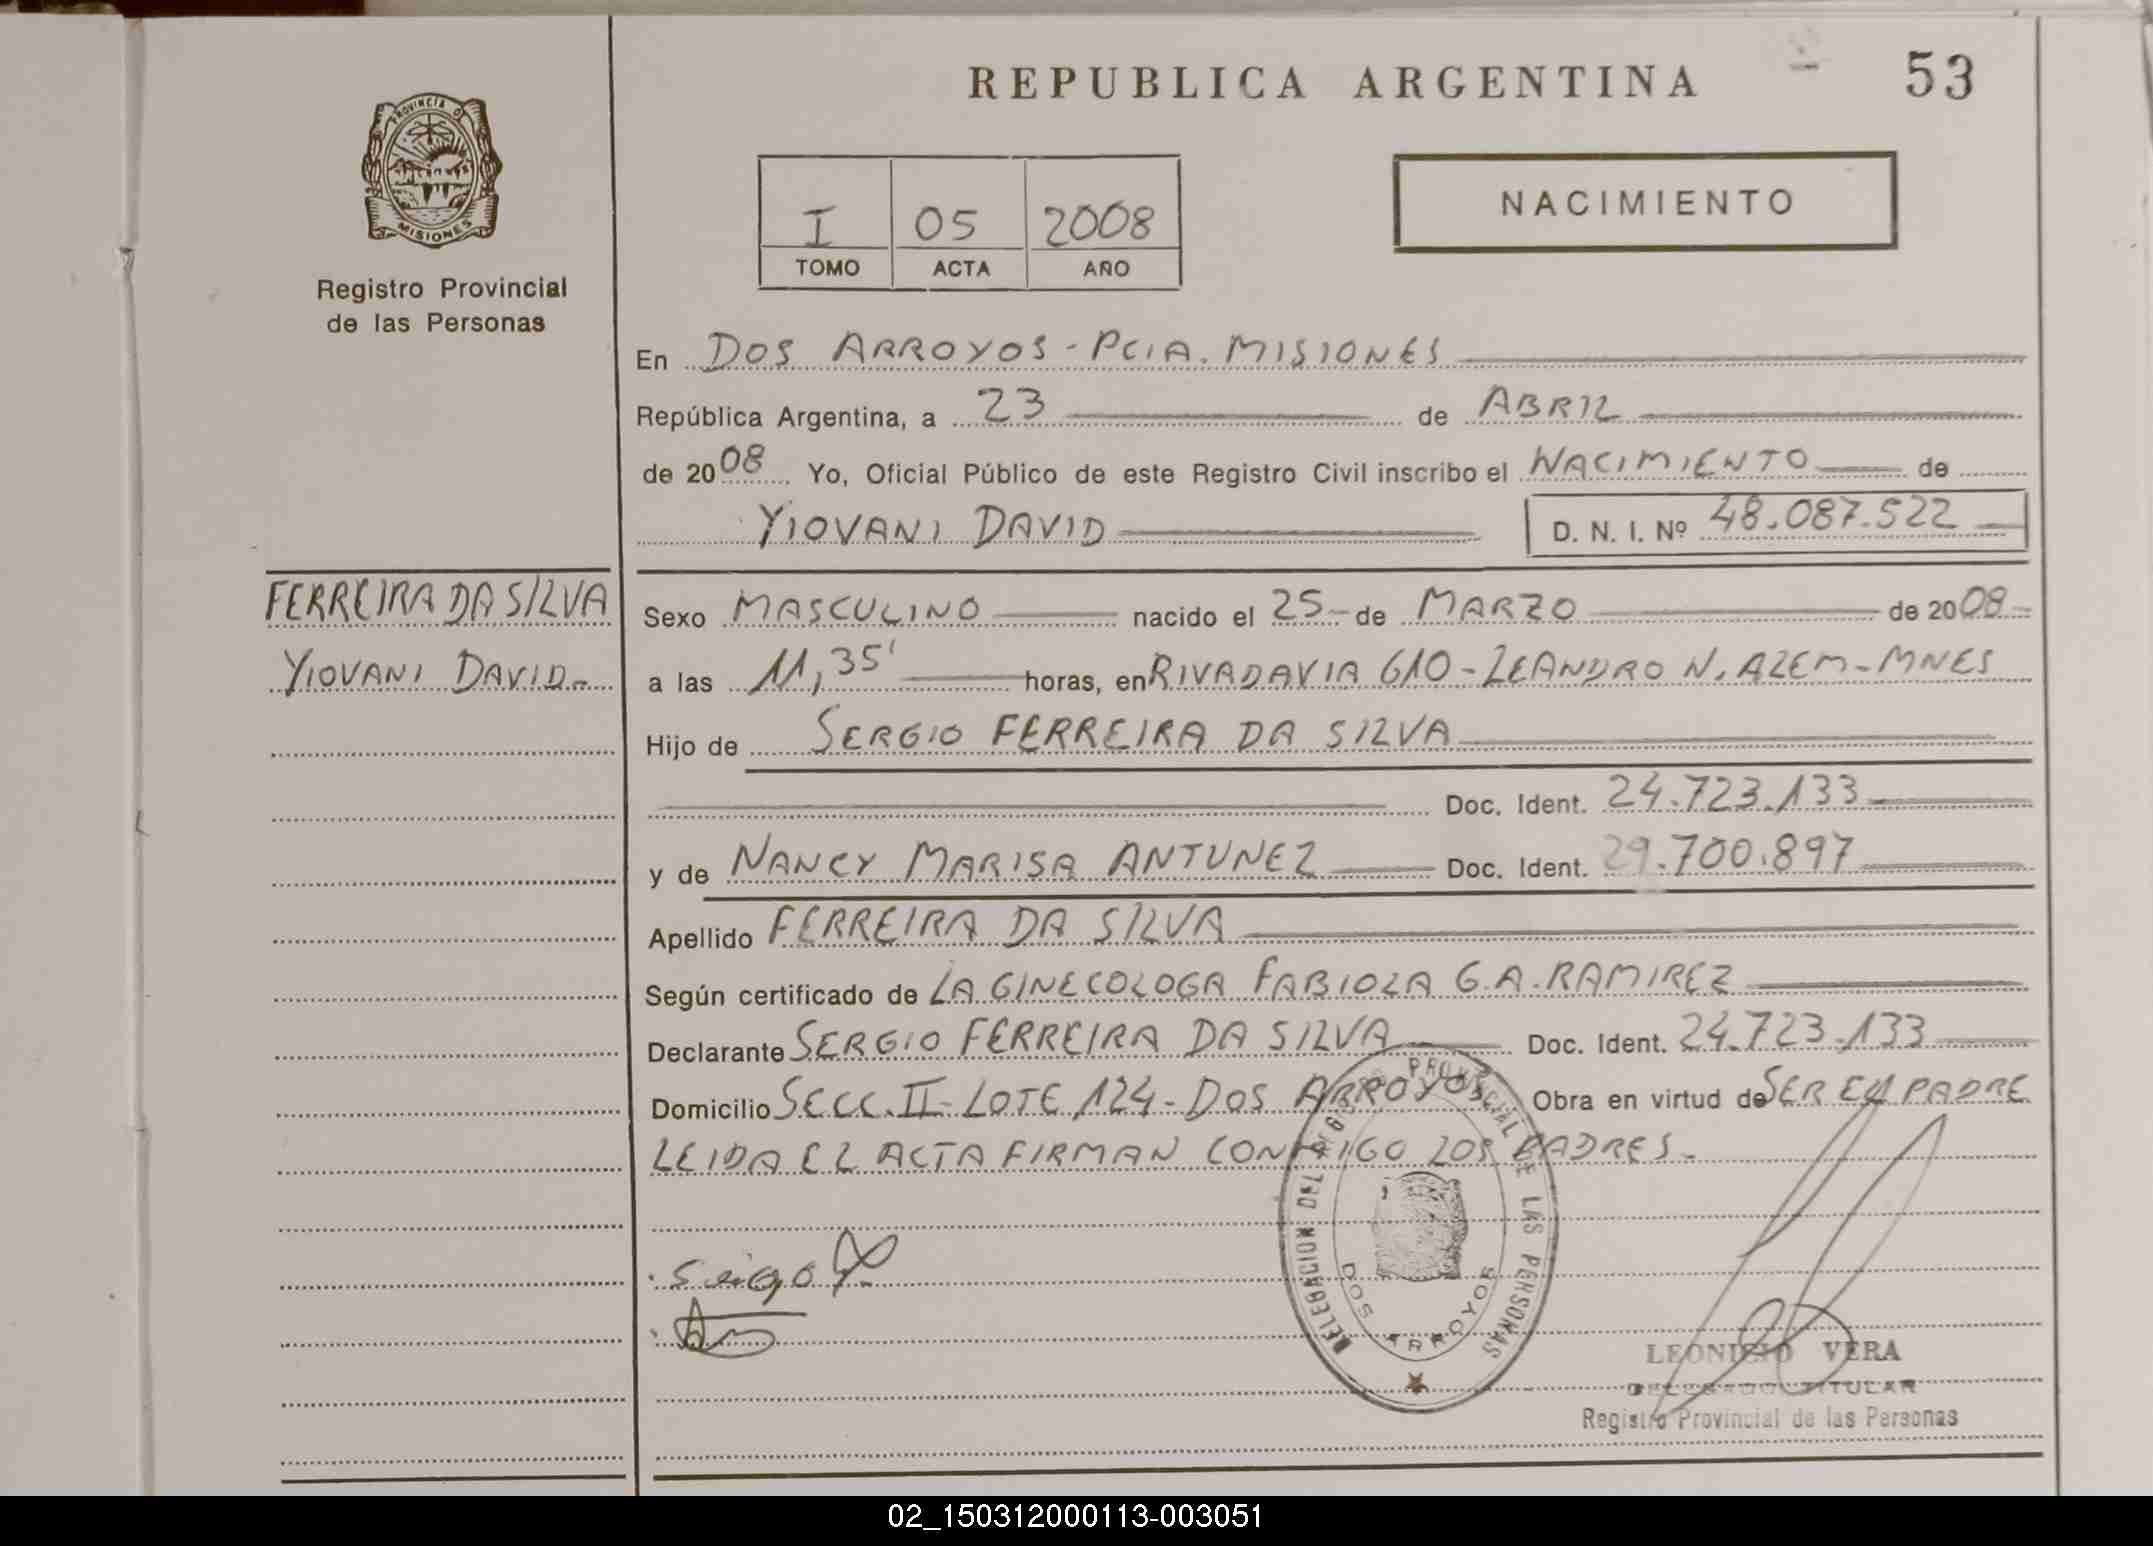 REPUBLICA ARGENTINA 53
PROVINCIA D
MISIONES
Registro Provincial
de las Personas
NACIMIENTO
I 05 2008
TOMO ACTA AÑO
En DOS ARROYOS - PCIA. MISIONES
República Argentina, a 23 de ABRIL
de 2008 Yo, Oficial Público de este Registro Civil inscribo el NACIMIENTO de
YIOVANI DAVID D. N. I. Nº 48.087.522
FERREIRA DA SILVA
YIOVANI DAVID.-
Sexo MASCULINO nacido el 25 de MARZO de 2008
a las 11,35' horas, en RIVADAVIA 610 - LEANDRO N. ALEM - MNES
Hijo de SERGIO FERREIRA DA SILVA
Doc. Ident. 24.723.133
y de NANCY MARISA ANTUNEZ Doc. Ident. 29.700.897
Apellido FERREIRA DA SILVA
Según certificado de LA GINECOLOGA FABIOLA G.A. RAMIREZ
Declarante SERGIO FERREIRA DA SILVA Doc. Ident. 24.723.133
Domicilio SECC. II - LOTE 124 - DOS ARROYOS Obra en virtud de SER EL PADRE
LEIDA EL ACTA FIRMAN CONMIGO LOS PADRES.-
DELEGACION DEL REGISTRO PROVINCIAL DE LAS PERSONAS
DOS ARROYOS
LEONICIO VERA
DELEGADO TITULAR
Registro Provincial de las Personas
02_150312000113-003051